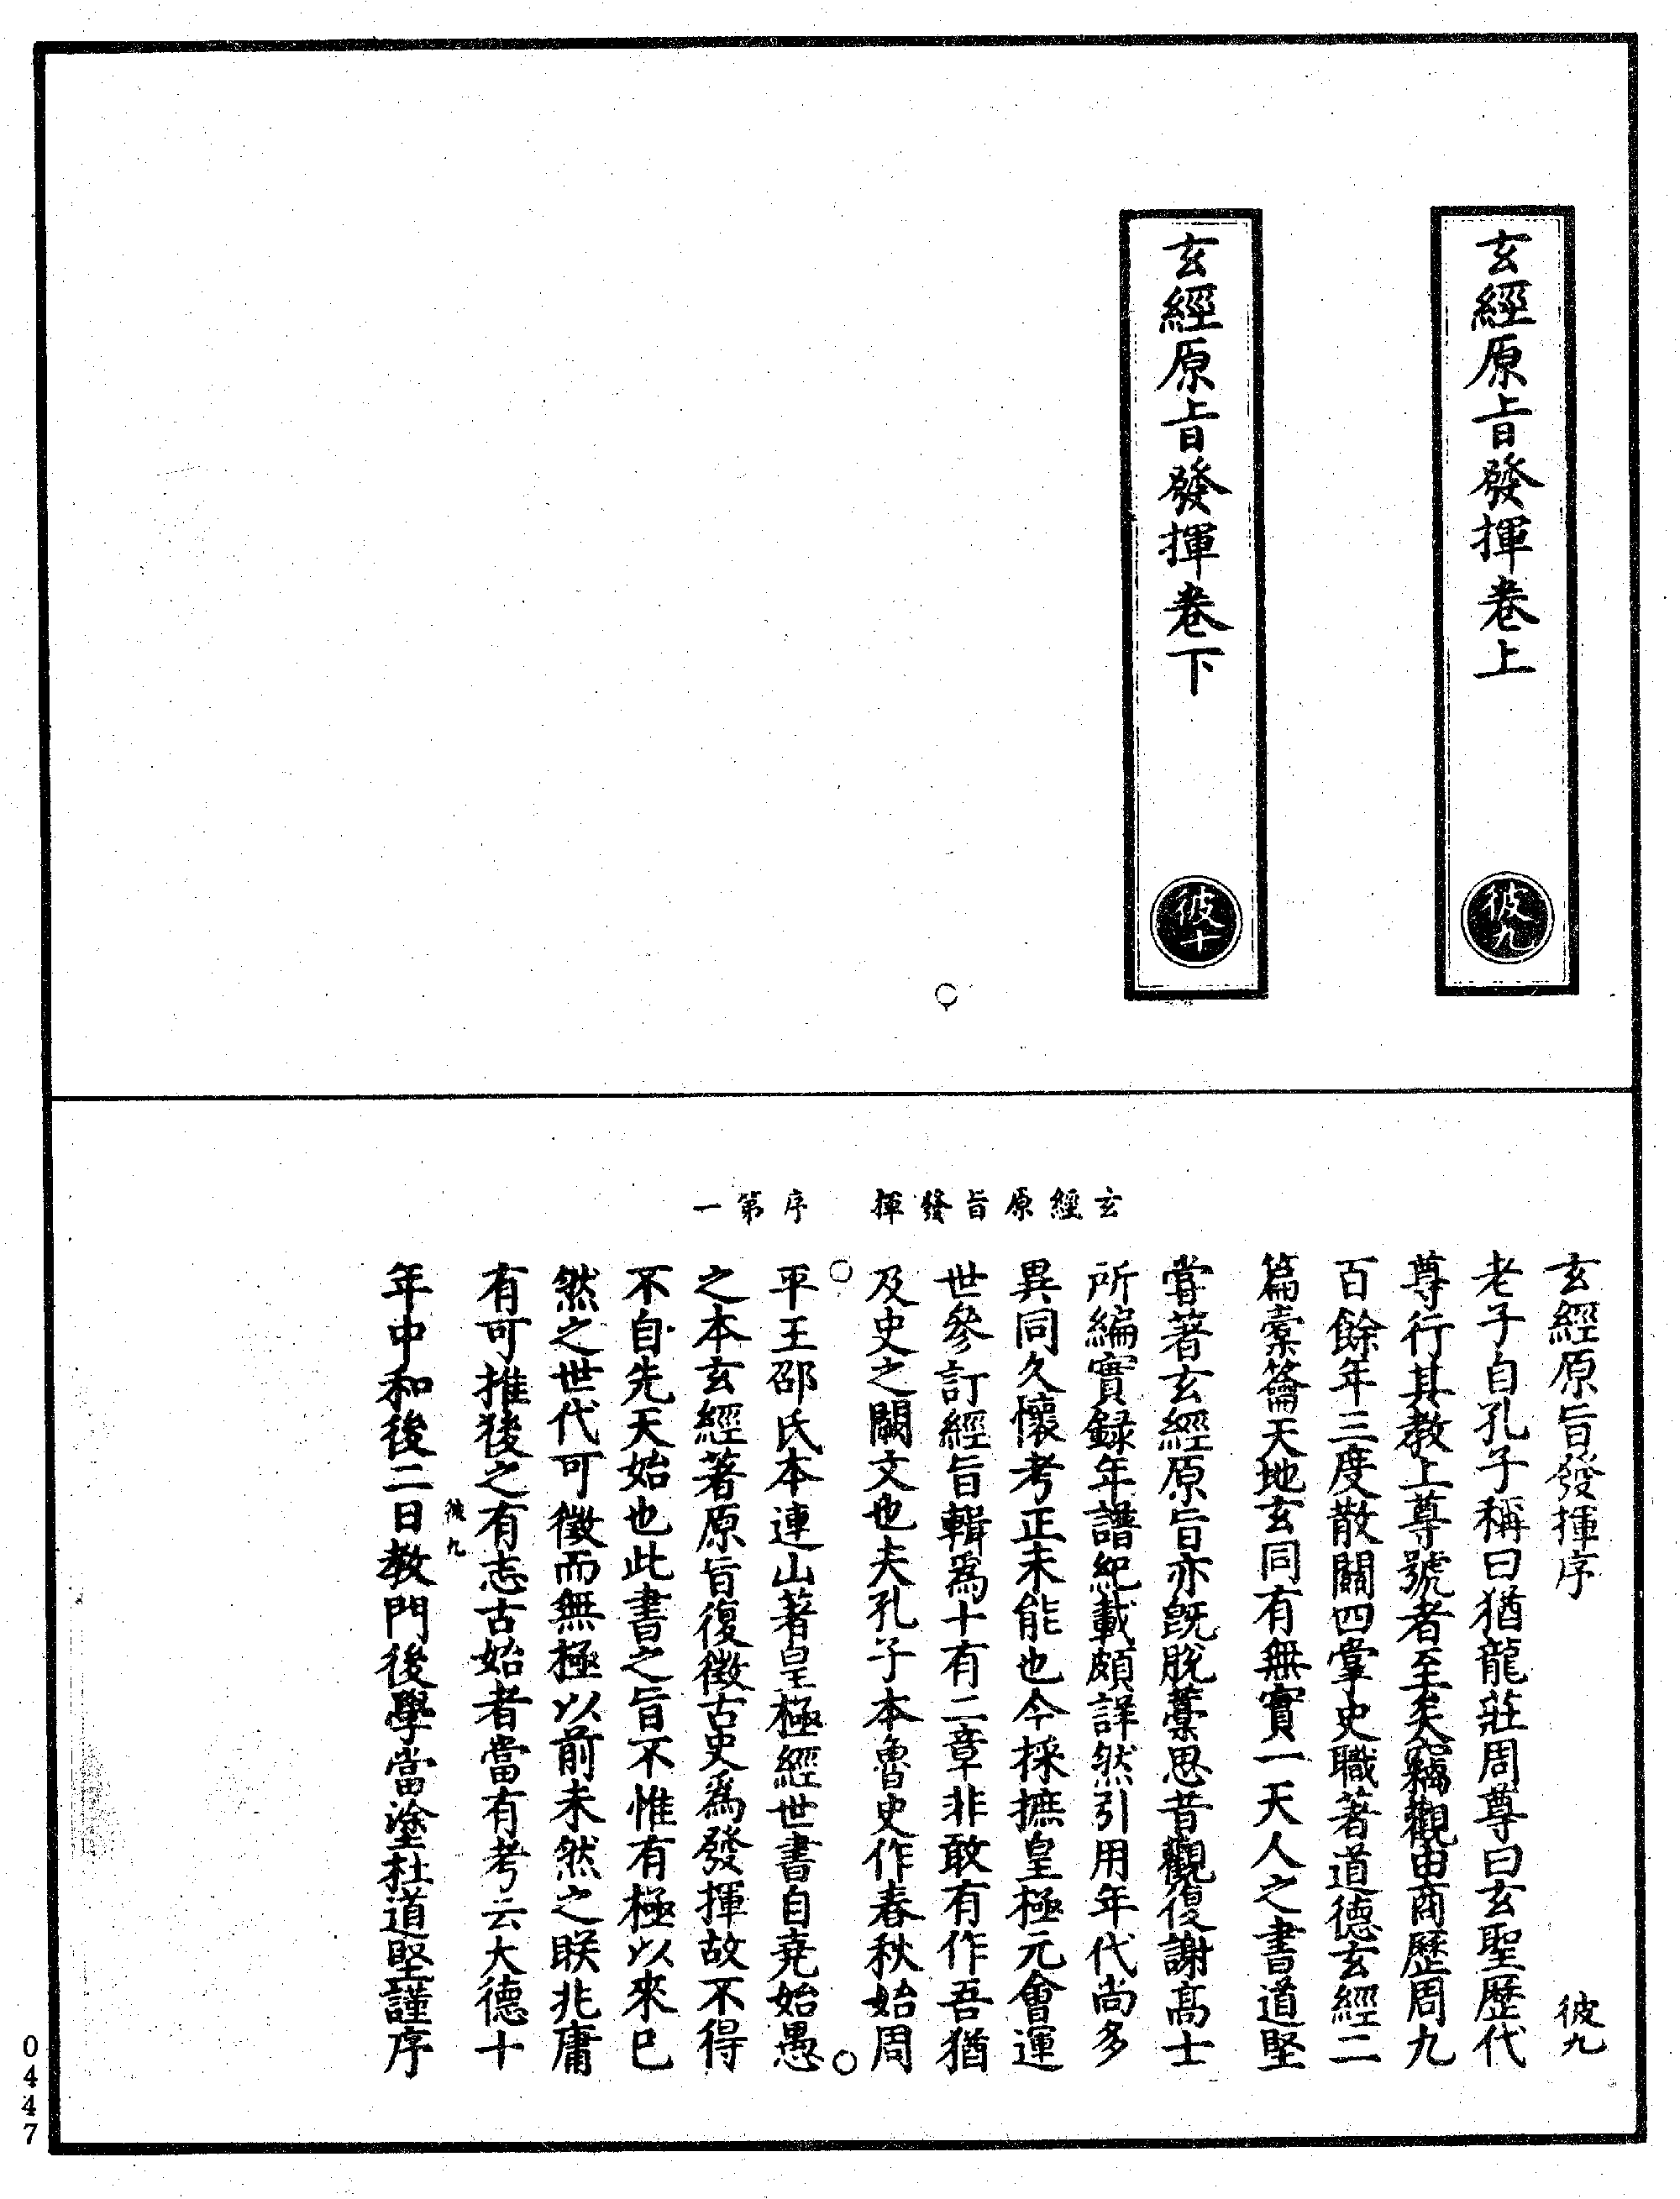 玄經原旨發揮卷上
彼九
玄經原旨發揮卷下
彼十
玄經原旨發揮 序第一
玄經原旨發揮序 彼九
老子自孔子稱曰猶龍莊周尊曰玄聖歷代
尊行其教上尊號者至矣竊觀由商歷周九
百餘年三度散關四掌史職著道德玄經二
篇槖籥天地玄同有無實一天人之書道堅
嘗著玄經原旨亦既脫藁思昔觀復謝高士
所編實録年譜紀載頗詳然引用年代尚多
異同久懷考正未能也今採摭皇極元會運
世參訂經旨輯爲十有二章非敢有作吾猶
及史之闕文也夫孔子本魯史作春秋始周
平王邵氏本連山著皇極經世書自堯始愚
之本玄經著原旨復徵古史爲發揮故不得
不自先天始也此書之旨不惟有極以來已
然之世代可徵而無極以前未然之眹兆庸
有可推後之有志古始者當有考云大德十
彼九
年中和後二日教門後學當塗杜道堅謹序
0447